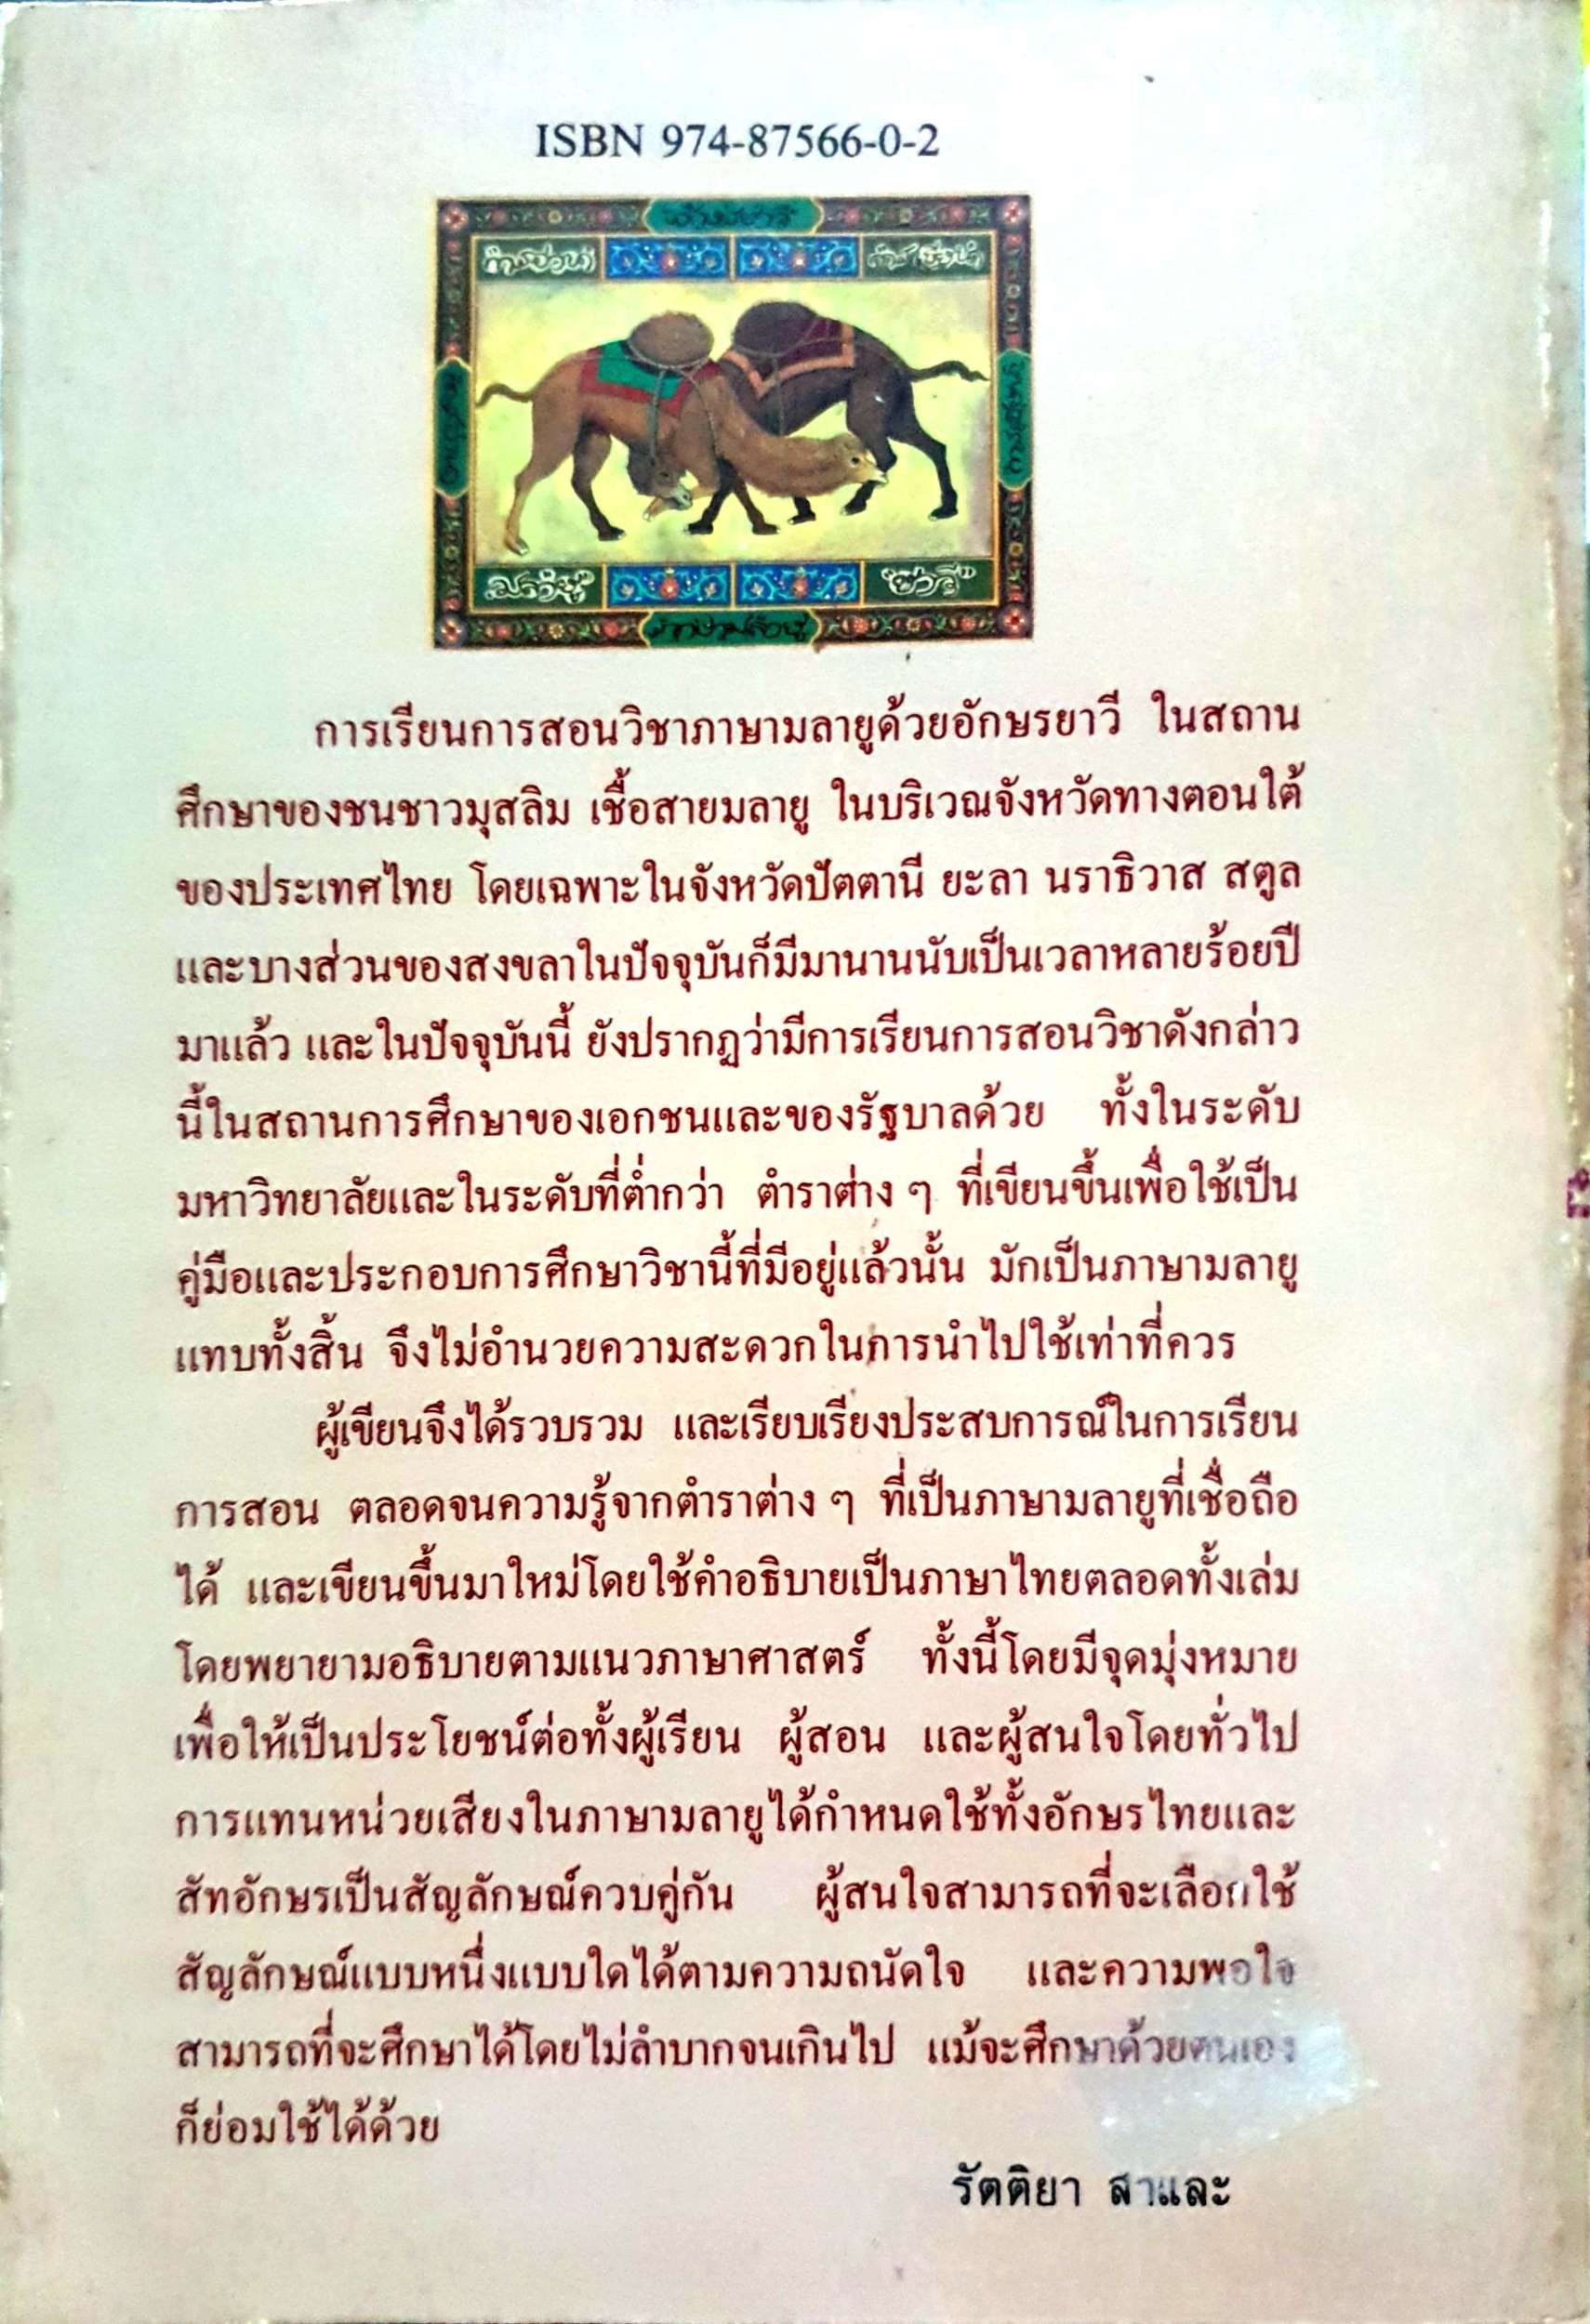 ISBN 974-87566-0-2
การอ่าน
"ยาวี"
การเรียนการสอนวิชาภาษามลายูด้วยอักษรยาวี ในสถาน
ศึกษาของชนชาวมุสลิม เชื้อสายมลายู ในบริเวณจังหวัดทางตอนใต้
ของประเทศไทย โดยเฉพาะในจังหวัดปัตตานี ยะลา นราธิวาส สตูล
และบางส่วนของสงขลาในปัจจุบันก็มีมานานนับเป็นเวลาหลายร้อยปี
มาแล้ว และในปัจจุบันนี้ ยังปรากฏว่ามีการเรียนการสอนวิชาดังกล่าว
นี้ในสถานการศึกษาของเอกชนและของรัฐบาลด้วย ทั้งในระดับ
มหาวิทยาลัยและในระดับที่ต่ำกว่า ตำราต่าง ๆ ที่เขียนขึ้นเพื่อใช้เป็น
คู่มือและประกอบการศึกษาวิชานี้ที่มีอยู่แล้วนั้น มักเป็นภาษามลายู
แทบทั้งสิ้น จึงไม่อำนวยความสะดวกในการนำไปใช้เท่าที่ควร
ผู้เขียนจึงได้รวบรวม และเรียบเรียงประสบการณ์ในการเรียน
การสอน ตลอดจนความรู้จากตำราต่าง ๆ ที่เป็นภาษามลายูที่เชื่อถือ
ได้ และเขียนขึ้นมาใหม่โดยใช้คำอธิบายเป็นภาษาไทยตลอดทั้งเล่ม
โดยพยายามอธิบายตามแนวภาษาศาสตร์ ทั้งนี้โดยมีจุดมุ่งหมาย
เพื่อให้เป็นประโยชน์ต่อทั้งผู้เรียน ผู้สอน และผู้สนใจโดยทั่วไป
การแทนหน่วยเสียงในภาษามลายูได้กำหนดใช้ทั้งอักษรไทยและ
สัทอักษรเป็นสัญลักษณ์ควบคู่กัน ผู้สนใจสามารถที่จะเลือกใช้
สัญลักษณ์แบบหนึ่งแบบใดได้ตามความถนัดใจ และความพอใจ
สามารถที่จะศึกษาได้โดยไม่ลำบากจนเกินไป แม้จะศึกษาด้วยตนเอง
ก็ย่อมใช้ได้ด้วย
รัตติยา สาและ